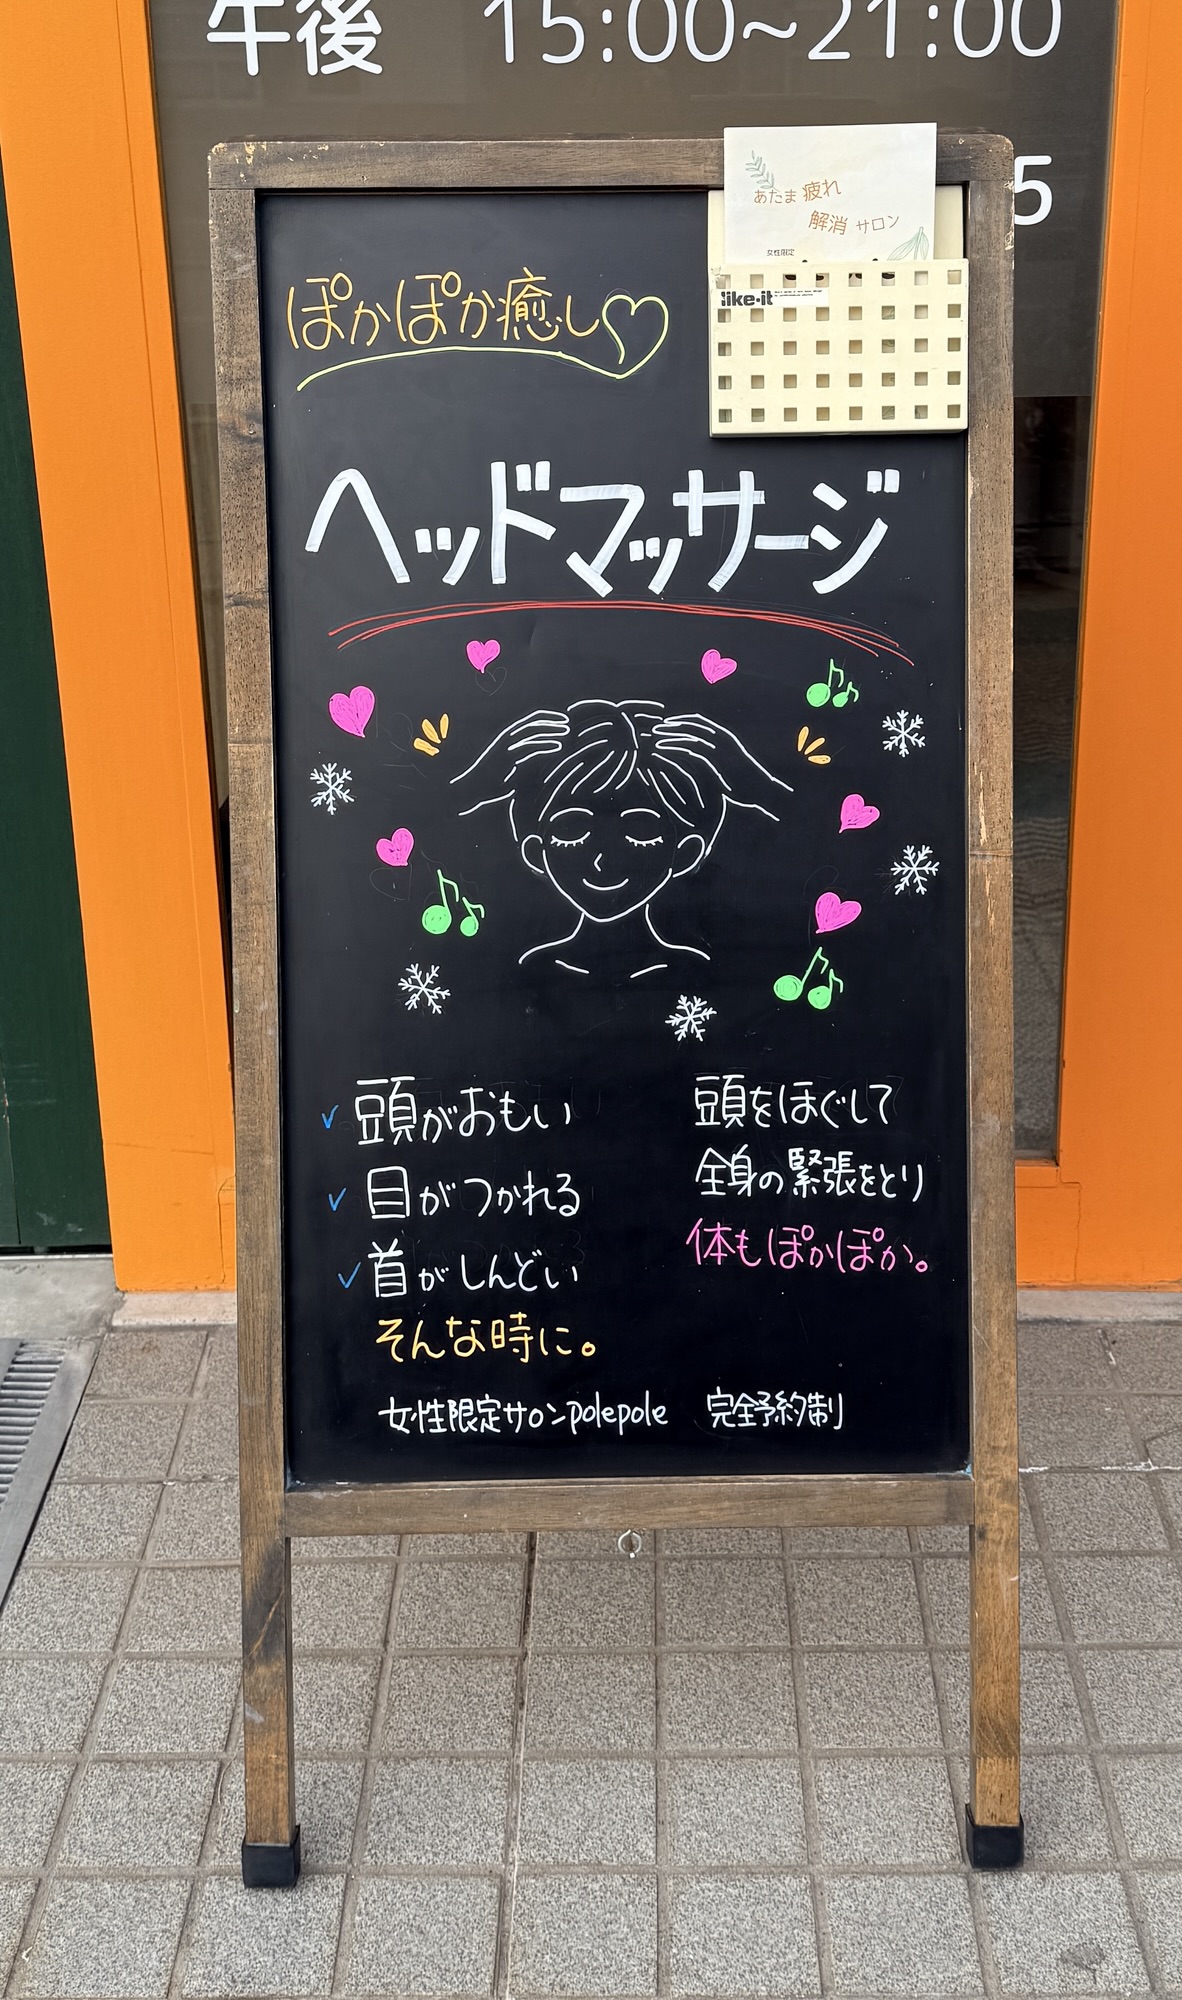 午後 15:00~21:00
5
あたま疲れ
解消サロン
女性限定
like-it
ぽかぽか癒し
ヘッドマッサージ
✓頭がおもい
✓目がつかれる
✓首がしんどい
そんな時に。
頭をほぐして
全身の緊張をとり
体もぽかぽか。
女性限定サロンpolepole 完全予約制